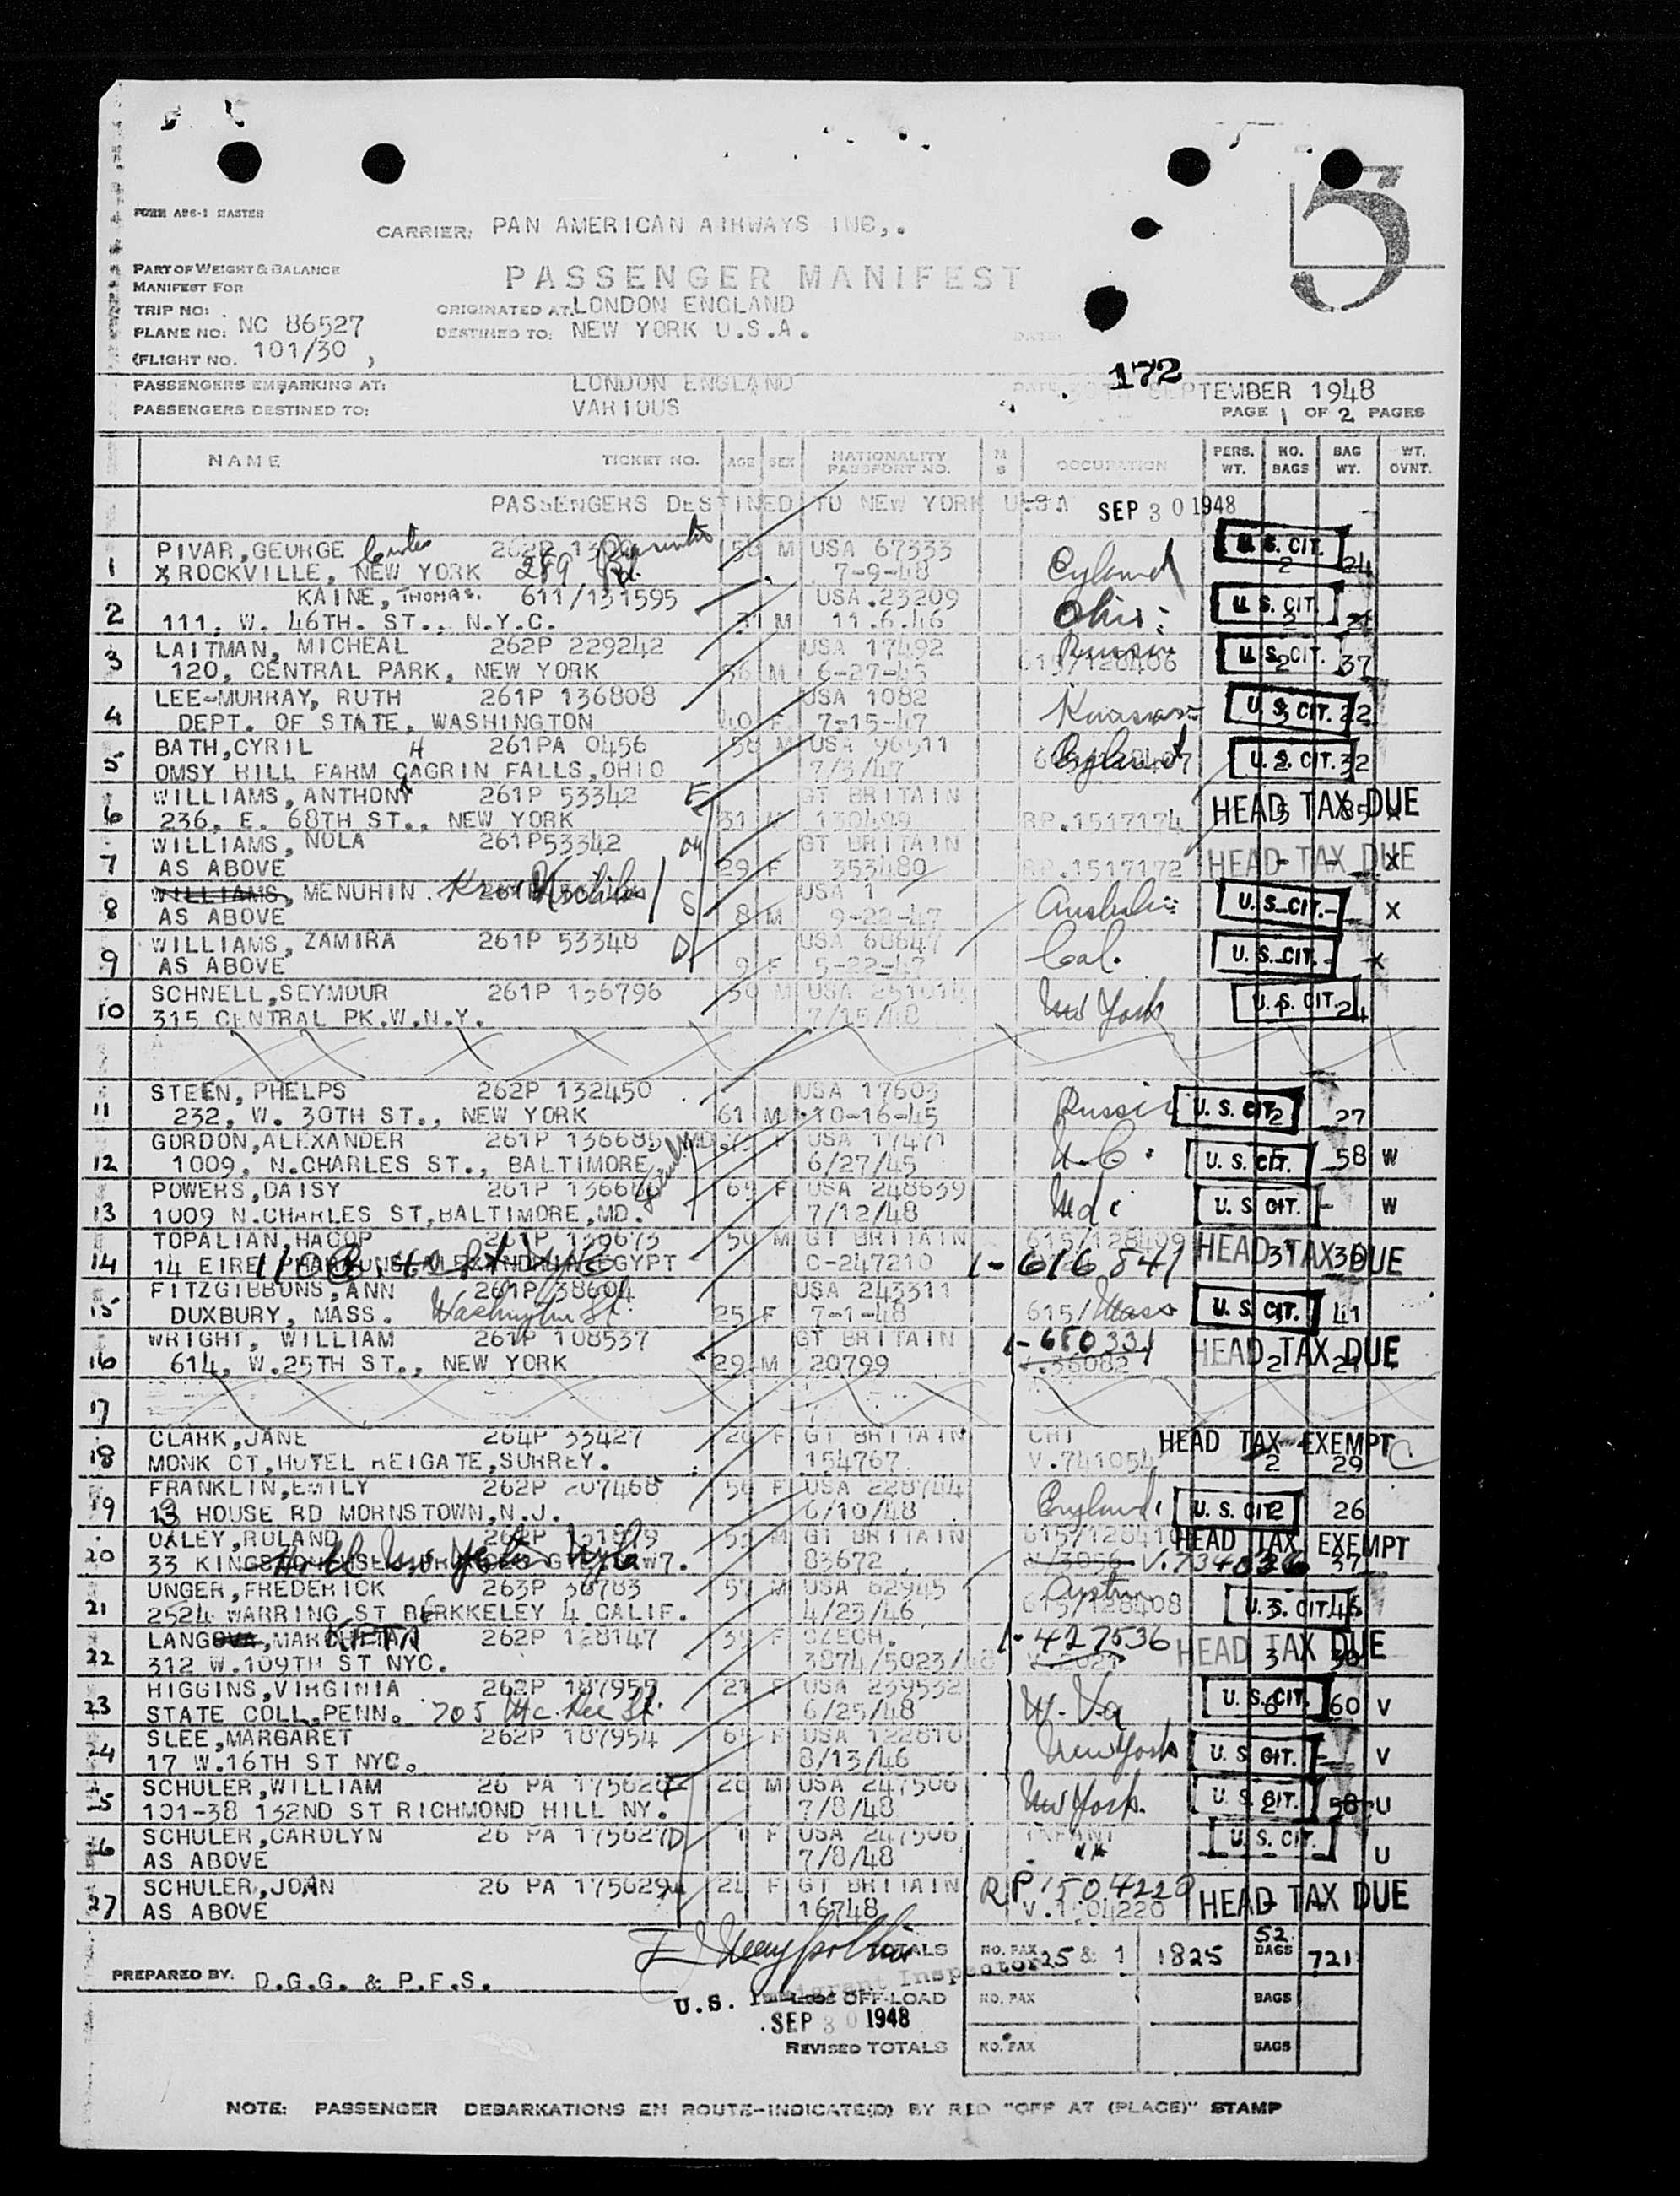 5
FORM ABS-1 MASTER
CARRIER: PAN AMERICAN AIRWAYS INC,.
PART OF WEIGHT & BALANCE
MANIFEST FOR
PASSENGER MANIFEST
TRIP NO:
ORIGINATED AT: LONDON ENGLAND
PLANE NO: NC 86527
DESTINED TO: NEW YORK U.S.A.
DATE:
(FLIGHT NO. 101/30 )
172
PASSENGERS EMBARKING AT: LONDON ENGLAND
DATE SEPTEMBER 1948
PASSENGERS DESTINED TO: VARIOUS
PAGE 1 OF 2 PAGES
NAME TICKET NO. AGE SEX NATIONALITY PASSPORT NO. M S OCCUPATION PERS. WT. NO. BAGS BAG WT. WT. OVNT.
PASSENGERS DESTINED TO NEW YORK U.S.A SEP 30 1948
PIVAR, GEORGE 262P M USA 67333 U.S. CIT.
1 ROCKVILLE, NEW YORK 289 Rd. 7-9-48 England 2 24
KAINE, THOMAS. 611/131595 USA.23209
2 111. W. 46TH. ST.. N.Y.C. 31 M 11.6.46 Ohio U.S. CIT. 2
LAITMAN, MICHEAL 262P 229242 USA 17492 Russia
3 120, CENTRAL PARK, NEW YORK 56 M 6-27-45 615/128406 U.S. CIT. 2 37
LEE-MURRAY, RUTH 261P 136808 USA 1082
4 DEPT. OF STATE, WASHINGTON 40 F 7-15-47 Kansas U.S. CIT. 22
BATH, CYRIL H 261PA 0456 58 M USA 96511
5 OMSY HILL FARM CAGRIN FALLS, OHIO 7/3/47 England U.S. CIT. 32
WILLIAMS, ANTHONY 261P 53342 GT BRITAIN
6 236, E. 68TH ST., NEW YORK 31 M 130499 RP.1517174 HEAD TAX DUE
WILLIAMS, NOLA 261P53342 GT BRITAIN
7 AS ABOVE 29 F 353480 RP.1517172 HEAD TAX DUE X
WILLIAMS, MENUHIN. Krov Nicholas USA 1
8 AS ABOVE 8 M 9-22-47 Australia U.S. CIT. X
WILLIAMS, ZAMIRA 261P 53348 D USA 68647
9 AS ABOVE 9 F 5-22-47 Cal. U.S. CIT. X
SCHNELL, SEYMOUR 261P 136796 M USA
10 315 CENTRAL PK.W.N.Y. 7/15/48 New York U.S. CIT. 24
STEEN, PHELPS 262P 132450 USA 17603
11 232, W. 30TH ST., NEW YORK 61 M 10-16-45 Russia U.S. CIT. 2 27
GORDON, ALEXANDER 261P 136685 MD. F USA 17471
12 1009, N.CHARLES ST., BALTIMORE 6/27/45 N.C. U.S. CIT. 58 W
POWERS, DAISY 261P F USA 248639
13 1009 N.CHARLES ST, BALTIMORE, MD. 7/12/48 Md. U.S. CIT. - W
TOPALIAN, HAGOP 261P 136673 M GT BRITAIN 615/128409
14 14 EIRE EGYPT C-247210 1-616841 HEAD TAX DUE
FITZGIBBONS, ANN 261P 38604 USA 243311
15 DUXBURY, MASS. Washington St. 25 F 7-1-48 615/ Mass U.S. CIT. 41
WRIGHT, WILLIAM 261P 108537 GT BRITAIN 1-680331
16 614, W.25TH ST., NEW YORK 29 M 20799 .36082 HEAD TAX DUE 2
17
CLARK, JANE 264P 33427 F GT BRITAIN HEAD TAX EXEMPT C
18 MONK CT, HOTEL REIGATE, SURREY. 154767 V.741054 2 29
FRANKLIN, EMILY 262P 207468 56 F USA 228744
19 13 HOUSE RD MORNSTOWN, N.J. 6/10/48 England U.S. CIT. 2 26
OXLEY, ROLAND 262P M GT BRITAIN HEAD TAX EXEMPT
20 33 Hotel New Yorker W7. 83672 37
UNGER, FREDERICK 263P 36783 57 M USA 62945 Austria
21 2524 WARRING ST BERKKELEY 4 CALIF. 4/23/46 615/128408 U.S. CIT.
LANG 262P 128147 F CZECH. 1-427536 HEAD TAX DUE
22 312 W.109TH ST NYC. 3874/5023/48 V.2021 3
HIGGINS, VIRGINIA 262P 187955 21 F USA 239532
23 STATE COLL, PENN. 705 Mc. Kee St. 6/25/48 W. Va U.S. CIT. 60 V
SLEE, MARGARET 262P 187954 F USA
24 17 W.16TH ST NYC. 8/13/46 New York U.S. CIT. - V
SCHULER, WILLIAM 26 PA M USA 247506
25 101-38 132ND ST RICHMOND HILL NY. 7/8/48 New York. U.S. CIT. 58 U
SCHULER, CAROLYN 26 PA 175627 D 1 F USA 247506 INFANT
26 AS ABOVE 7/8/48 U.S. CIT. U
SCHULER, JOAN 26 PA 175629 F GT BRITAIN RP 1504220
27 AS ABOVE 16748 V.1504220 HEAD TAX DUE
TOTALS NO. PAX 25 & 1 1825 52 BAGS 721
PREPARED BY: D.G.G. & P.F.S.
U.S. Immigrant Inspector
LESS OFF-LOAD NO. PAX BAGS
SEP 30 1948
REVISED TOTALS NO. PAX BAGS
NOTE: PASSENGER DEBARKATIONS EN ROUTE-INDICATE(D) BY RED "OFF AT (PLACE)" STAMP